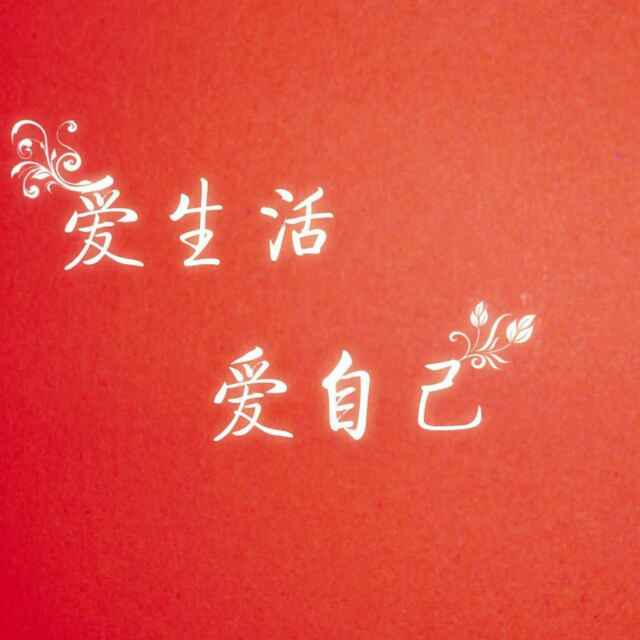 爱生活
爱自己